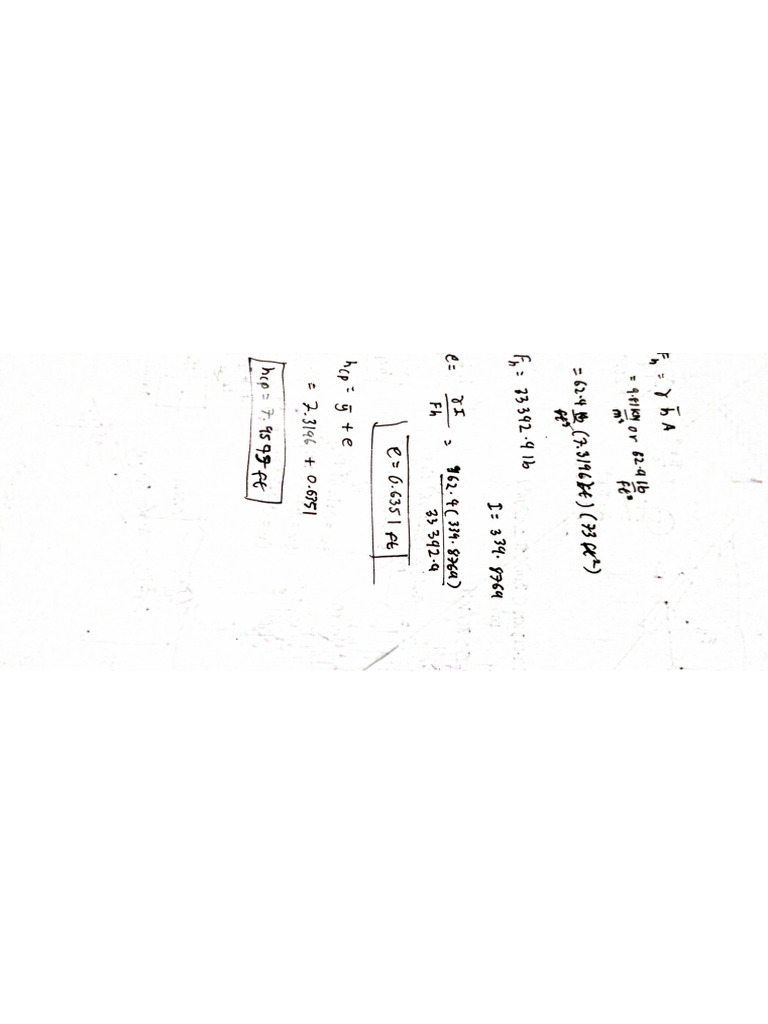 F_h = γ h̄ A
= 9.81 kN/m³ or 62.4 lb/ft³
= 62.4 lb/ft³ (7.3196 ft) (73 ft²)
F_h = 33392.9 lb
I = 339.8769
e = γI/F_h = 62.4 (339.8769)/33392.9
e = 0.6351 ft
hcp = ȳ + e
= 7.3196 + 0.6351
hcp = 7.9547 ft